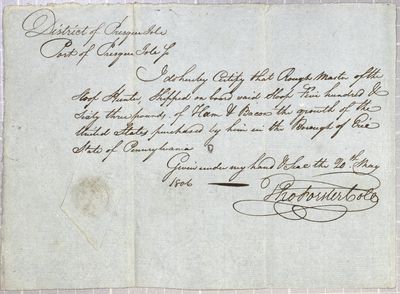 District of Presque Isle
Port of Presque Isle Ss
I do hereby Certify that Rough Master of the
Sloop Hunter, Shipped on board said Sloop Five hundred &
Sixty three pounds, of Ham & Bacon the growth of the
United States purchased by him in the Borough of Erie
State of Pennsylvania
Given under my hand & Seal the 20th May
1806
Tho Forster Colr